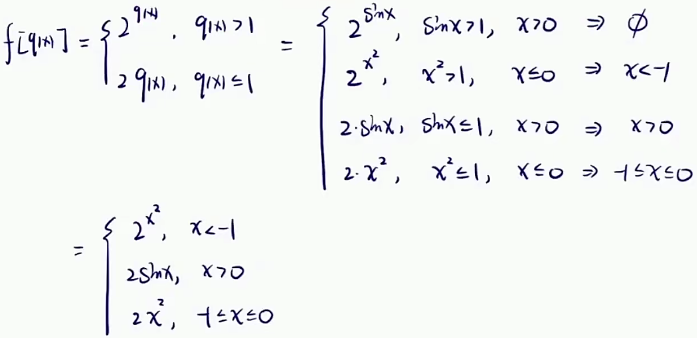 f[φ(x)] = { 2^φ(x), φ(x)>1 = { 2^sinx, sinx>1, x>0 ⇒ ∅
2^x², x²>1, x≤0 ⇒ x<-1
2φ(x), φ(x)≤1
2·sinx, sinx≤1, x>0 ⇒ x>0
2·x², x²≤1, x≤0 ⇒ -1≤x≤0
= { 2^x², x<-1
2sinx, x>0
2x², -1≤x≤0